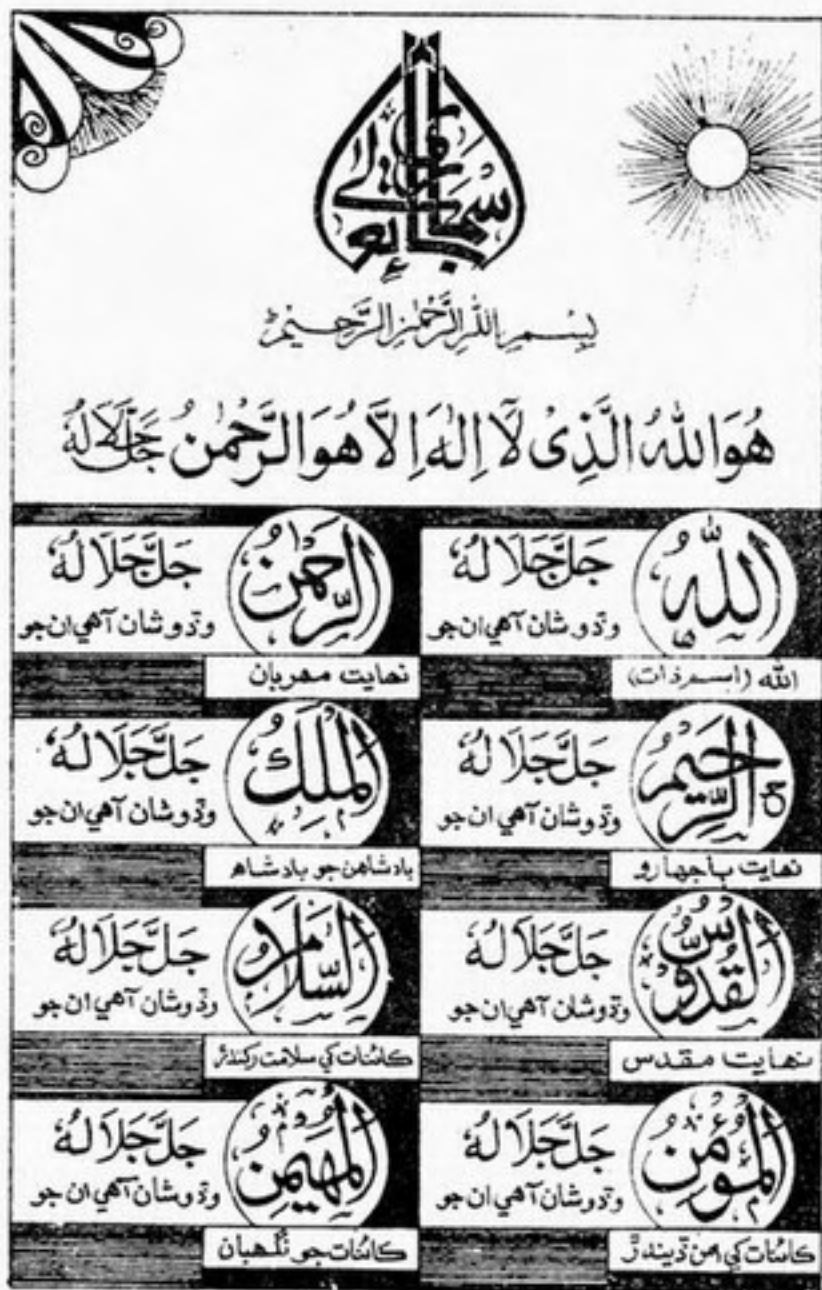 سبحانہ تعالیٰ
بِسْمِ اللهِ الرَّحْمٰنِ الرَّحِيْمِ
هُوَ اللهُ الَّذِىْ لَآ اِلٰهَ اِلَّا هُوَ الرَّحْمٰنُ جَلَّ جَلَالَهُ
اللّٰهُ جَلَّ جَلَا لُهٗ
وڏو شان آهي ان جو
الله (اسم ذات)
الرَّحْمٰنُ جَلَّ جَلَا لُهٗ
وڏو شان آهي ان جو
نهايت مهربان
الرَّحِيْمُ جَلَّ جَلَا لُهٗ
وڏو شان آهي ان جو
نهايت ٻاجهارو
الْمَلِكُ جَلَّ جَلَا لُهٗ
وڏو شان آهي ان جو
بادشاهن جو بادشاهه
الْقُدُّوْسُ جَلَّ جَلَا لُهٗ
وڏو شان آهي ان جو
نهايت مقدس
السَّلَامُ جَلَّ جَلَا لُهٗ
وڏو شان آهي ان جو
ڪائنات کي سلامت رکندڙ
الْمُؤْمِنُ جَلَّ جَلَا لُهٗ
وڏو شان آهي ان جو
ڪائنات کي امن ڏيندڙ
الْمُهَيْمِنُ جَلَّ جَلَا لُهٗ
وڏو شان آهي ان جو
ڪائنات جو نگهبان